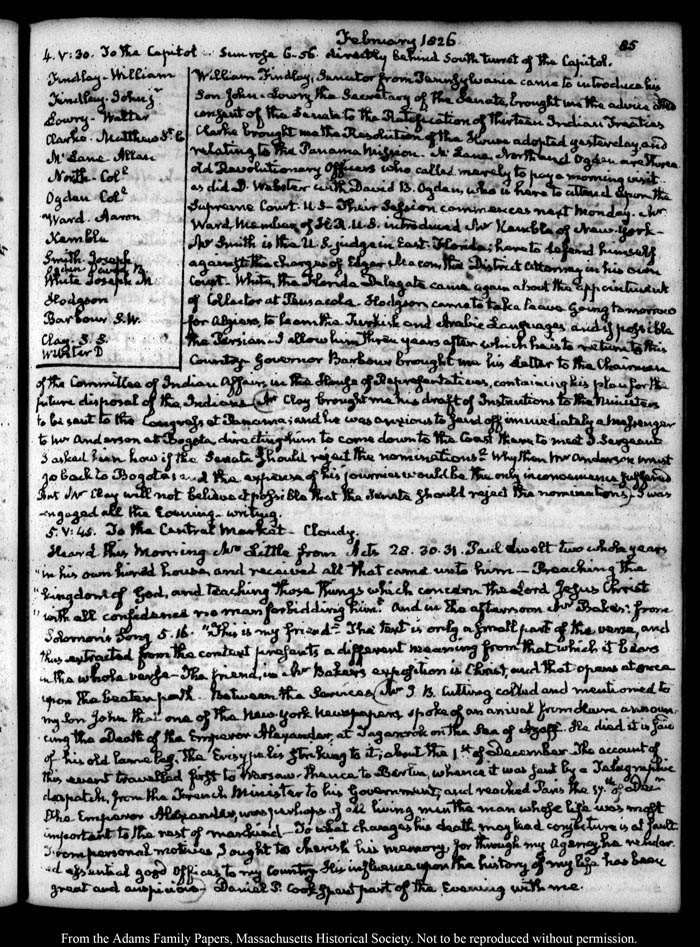 February 1826.
85
4. V:30. To the Capitol. Sun rose 6-56. directly behind South turret of the Capitol.
Findlay-William
Findlay-John jr
Lowry-Walter
Clarke. Matthew St. C
McLane Allan
North-Coll
Ogden Coll
Ward. Aaron
Kemble
Smith Joseph
Ogden David B.
White Joseph M
Hodgson
Barbour S.W.
Clay. S.S.
Webster D
William Findlay, Senator from Pennsylvania came to introduce his
Son John-Lowry the Secretary of the Senate, brought me the advice and
consent of the Senate to the Ratification of thirteen Indian Treaties
Clarke brought me the Resolution of the House adopted yesterday, and
relating to the Panama Mission. McLane, North and Ogden are three
old Revolutionary Officers who called merely to pay a morning visit
as did D. Webster with David B. Ogden, who is here to attend upon the
Supreme Court. U.S-Their Session commences next Monday. Mr
Ward Member of H.R.U.S. introduced Mr Kemble of New-York-
Mr Smith is the U.S. judge in East. Florida; here to defend himself
against the charges of Edgar Macon, the District Attorney in his own
Court. White, the Florida Delegate came again about the appointment
of Collector at Pensacola. Hodgson came to take leave going tomorrow
for Algiers, to learn the Turkish and Arabic Languages and if possible
the Persian. I allow him three years after which he is to return to this
Country. Governor Barbour brought me his Letter to the Chairman
of the Committee of Indian Affairs, in the House of Representatives, containing his plan for the
future disposal of the Indians (Mr Clay brought me his draft of Instructions to the Ministers
to be sent to the Congress at Panama; and he was anxious to send off immediately a messenger
to Mr Anderson at Bogota, directing him to come down to the Coast there to meet J. Sergeant
I asked him how if the Senate should reject the nominations? Why then Mr Anderson must
go back to Bogota; and the expense of his journies would be the only inconvenience suffered
But Mr Clay will not believe it possible that the Senate should reject the nominations) I was
engaged all the Evening-writing.
5. V:45. To the Central Market-Cloudy.
Heard this Morning Mr Little from Acts 28. 30.31. Paul dwelt two whole years
"in his own hired house, and received all that came unto him-Preaching the
"kingdom of God, and teaching those things which concern the Lord Jesus Christ
"with all confidence no man forbidding him. And in the afternoon Mr Baker: from
Solomon's Song 5.16. "This is my friend" The text is only a small part of the verse, and
thus extracted from the context presents a different meaning from that which it bears
in the whole verse-The friend, in Mr Baker's exposition is Christ, and that opens at once
upon the beaten path. Between the Services (Mr J B. Cutting called and mentioned to
my Son John that one of the New York newspapers, spoke of an arrival from Havre announ-
cing the Death of the Emperor Alexander, at Taganrok on the Sea of Azoff. He died it is said
of his old lame leg, the Erisypelis striking to it; about the 1st of December. The account of
this event travelled first to Warsaw. thence to Berlin, whence it was sent by a Telegraphic
despatch, from the French Minister to his Government, and reached Paris the 17th of Decr
The Emperor Alexander, was perhaps of all living men the man whose life was most
important to the rest of mankind-To what changes his death may lead conjecture is at fault
From personal motives I ought to cherish his memory for through my Agency he render-
ed essential good Offices to my Country. His influence upon the history of my life has been
great and auspicious) Daniel P. Cook spent part of the Evening with me.
From the Adams Family Papers, Massachusetts Historical Society. Not to be reproduced without permission.